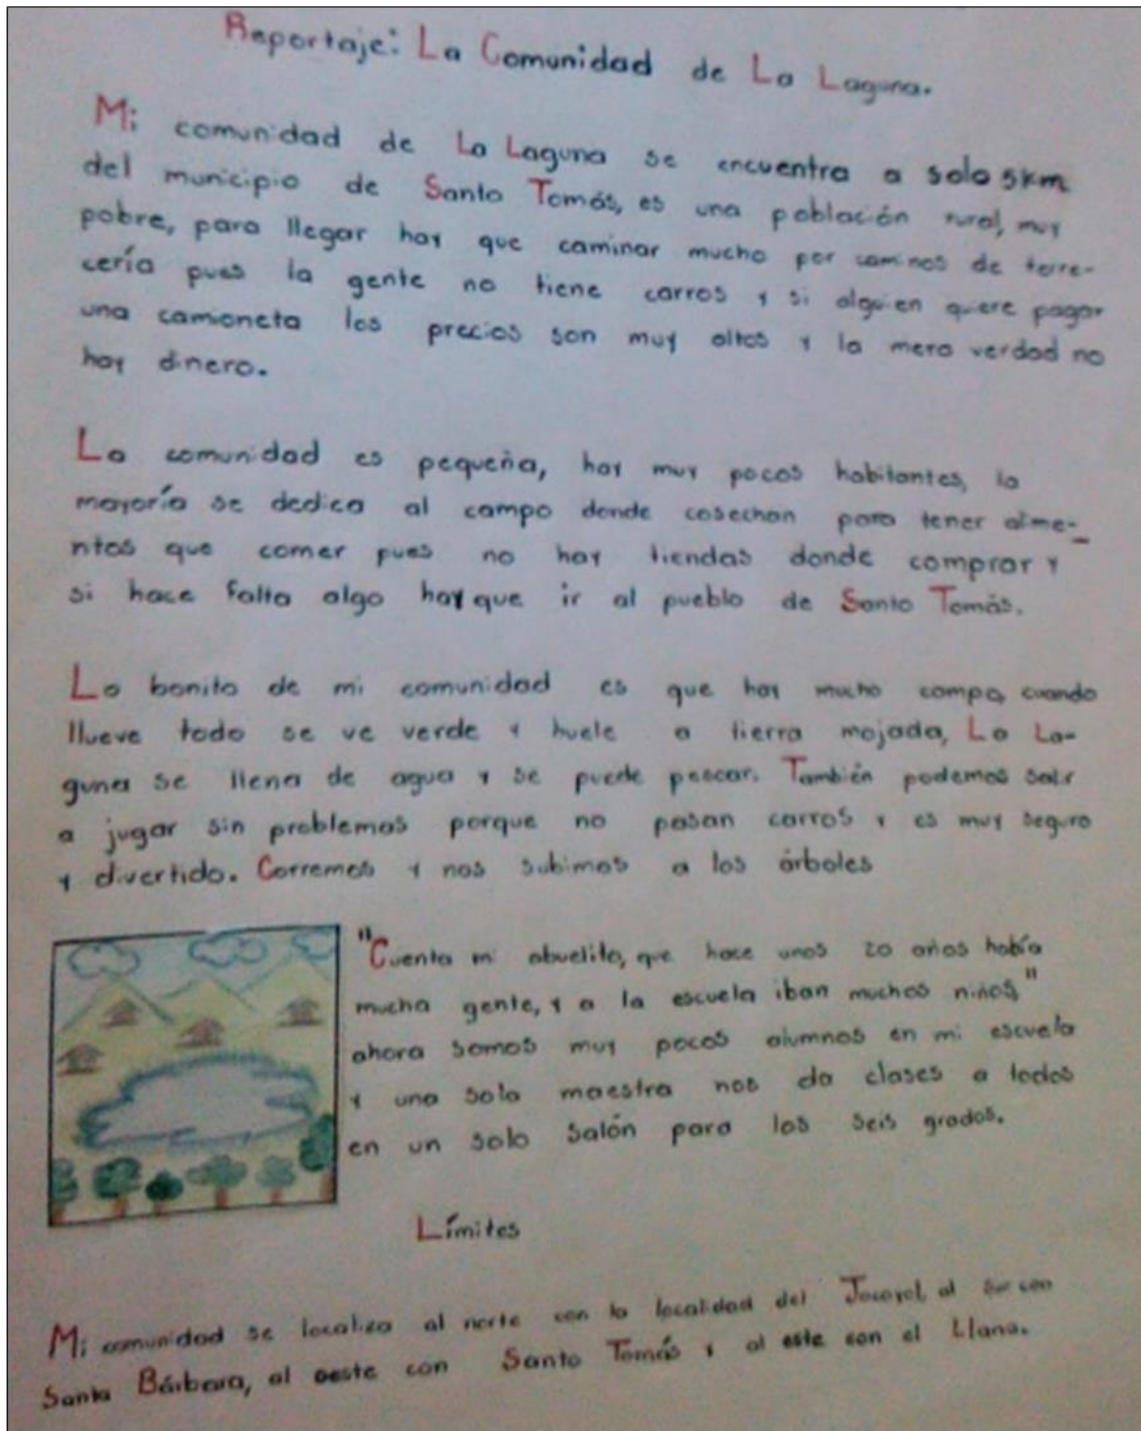 Reportaje: La Comunidad de La Laguna.
Mi comunidad de La Laguna se encuentra a solo 5km
del municipio de Santo Tomás, es una población rural, muy
pobre, para llegar hay que caminar mucho por caminos de terre-
cería pues la gente no tiene carros y si alguien quiere pagar
una camioneta los precios son muy altos y la mera verdad no
hay dinero.
La comunidad es pequeña, hay muy pocos habitantes, la
mayoría se dedica al campo donde cosechan para tener alime-
ntos que comer pues no hay tiendas donde comprar y
si hace falta algo hay que ir al pueblo de Santo Tomás.
Lo bonito de mi comunidad es que hay mucho campo, cuando
llueve todo se ve verde y huele a tierra mojada, La La-
guna se llena de agua y se puede pescar. También podemos salir
a jugar sin problemas porque no pasan carros y es muy seguro
y divertido. Corremos y nos subimos a los árboles
"Cuenta mi abuelito, que hace unos 20 años había
mucha gente, y a la escuela iban muchos niños,"
ahora somos muy pocos alumnos en mi escuela
y una sola maestra nos da clases a todos
en un solo salón para los seis grados.
Límites
Mi comunidad se localiza al norte con la localidad del Jocoyol, al sur con
Santa Bárbara, al oeste con Santo Tomás y al este con el Llano.